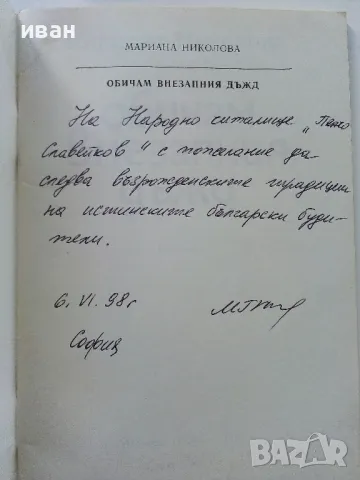 иван
МАРИАНА НИКОЛОВА
ОБИЧАМ ВНЕЗАПНИЯ ДЪЖД
На Народно читалище „Пенчо
Славейков“ с пожелание да
следва възрожденските традиции
на истинските български буди-
тели.
6. VI. 98 г
София
Bazar.bg